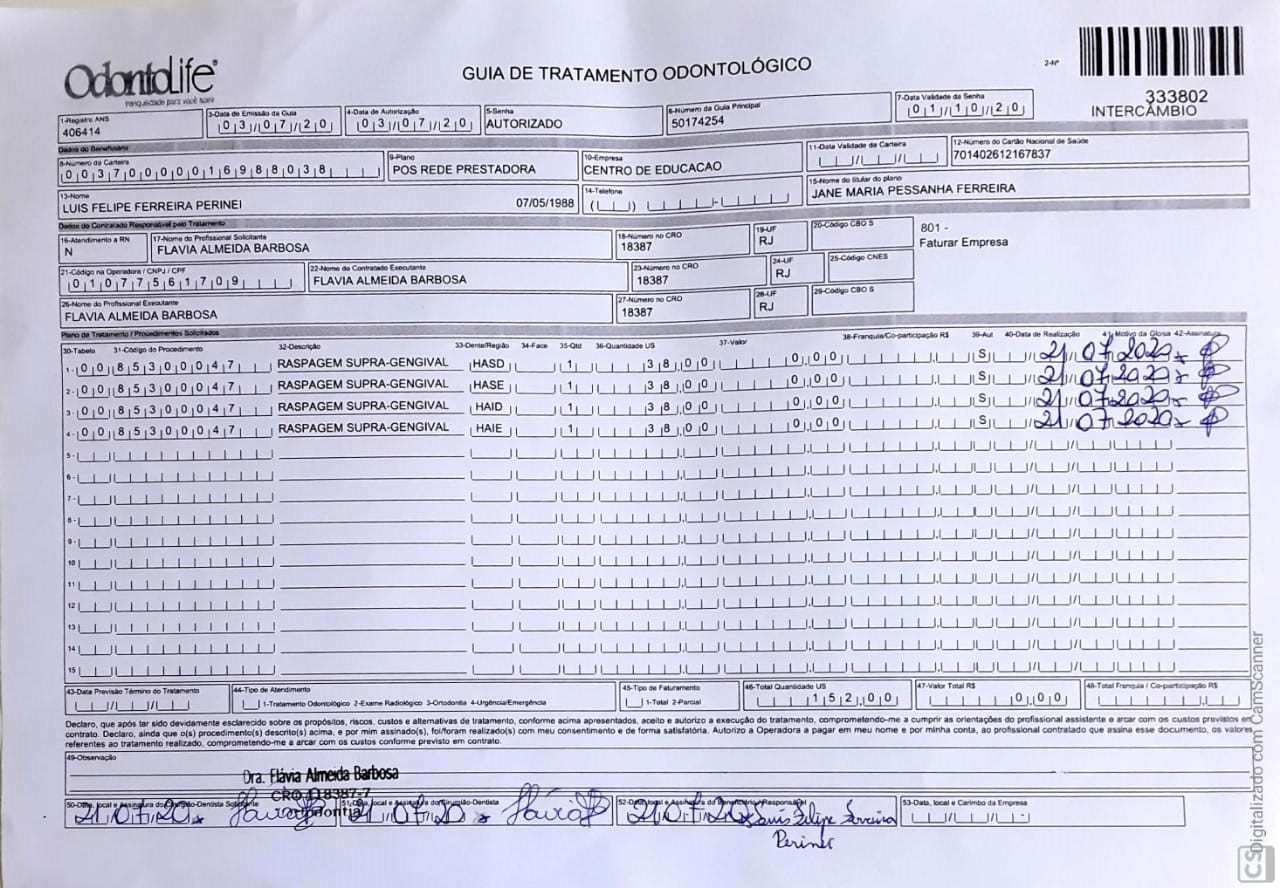 OdontoLife
tranquilidade para você sorrir
GUIA DE TRATAMENTO ODONTOLÓGICO
2-Nº
333802
INTERCÂMBIO
1-Registro ANS
406414
3-Data de Emissão da Guia
03/07/20
4-Data de Autorização
03/07/20
5-Senha
AUTORIZADO
6-Número da Guia Principal
50174254
7-Data Validade da Senha
01/10/20
Dados do Beneficiário
8-Número da Carteira
00370000016988038
9-Plano
POS REDE PRESTADORA
10-Empresa
CENTRO DE EDUCACAO
11-Data Validade da Carteira
12-Número do Cartão Nacional de Saúde
701402612167837
13-Nome
LUIS FELIPE FERREIRA PERINEI 07/05/1988
14-Telefone
15-Nome do titular do plano
JANE MARIA PESSANHA FERREIRA
Dados do Contratado Responsável pelo Tratamento
16-Atendimento a RN
N
17-Nome do Profissional Solicitante
FLAVIA ALMEIDA BARBOSA
18-Número no CRO
18387
19-UF
RJ
20-Código CBO S
801 -
Faturar Empresa
21-Código na Operadora / CNPJ / CPF
01077561709
22-Nome do Contratado Executante
FLAVIA ALMEIDA BARBOSA
23-Número no CRO
18387
24-UF
RJ
25-Código CNES
26-Nome do Profissional Executante
FLAVIA ALMEIDA BARBOSA
27-Número no CRO
18387
28-UF
RJ
29-Código CBO S
Plano de Tratamento / Procedimentos Solicitados
30-Tabela 31-Código do Procedimento 32-Descrição 33-Dente/Região 34-Face 35-Qtd 36-Quantidade US 37-Valor 38-Franquia/Co-participação R$ 39-Aut 40-Data de Realização 41-Motivo da Glosa 42-Assinatura
1- 00 85300047 RASPAGEM SUPRA-GENGIVAL HASD 1 38,00 0,00 S 21 07 2020
2- 00 85300047 RASPAGEM SUPRA-GENGIVAL HASE 1 38,00 0,00 S 21 07 2020
3- 00 85300047 RASPAGEM SUPRA-GENGIVAL HAID 1 38,00 0,00 S 21 07 2020
4- 00 85300047 RASPAGEM SUPRA-GENGIVAL HAIE 1 38,00 0,00 S 21 07 2020
5-
6-
7-
8-
9-
10
11
12
13
14
15
43-Data Previsão Término do Tratamento
44-Tipo de Atendimento
1-Tratamento Odontológico 2-Exame Radiológico 3-Ortodontia 4-Urgência/Emergência
45-Tipo de Faturamento
1-Total 2-Parcial
46-Total Quantidade US
152,00
47-Valor Total R$
0,00
48-Total Franquia / Co-participação R$
Declaro, que após ter sido devidamente esclarecido sobre os propósitos, riscos, custos e alternativas de tratamento, conforme acima apresentados, aceito e autorizo a execução do tratamento, comprometendo-me a cumprir as orientações do profissional assistente e arcar com os custos previstos em
contrato. Declaro, ainda que o(s) procedimento(s) descrito(s) acima, e por mim assinado(s), foi/foram realizado(s) com meu consentimento e de forma satisfatória. Autorizo a Operadora a pagar em meu nome e por minha conta, ao profissional contratado que assina esse documento, os valores
referentes ao tratamento realizado, comprometendo-me a arcar com os custos conforme previsto em contrato.
49-Observação
Dra. Flávia Almeida Barbosa
CRO 118387-7
50-Data, local e Assinatura do Cirurgião-Dentista Solicitante
21.07.20
51-Data, local e Assinatura do Cirurgião-Dentista
21.07.20
52-Data, local e Assinatura do Beneficiário/Responsável
21.07.20 Luis Felipe Ferreira
Perinei
53-Data, local e Carimbo da Empresa
Digitalizado com CamScanner
CS